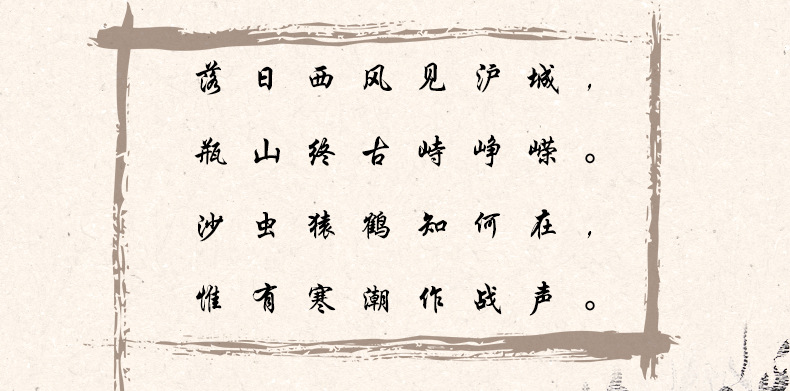 落日西风见沪城，
瓶山终古峙峥嵘。
沙虫猿鹤知何在，
惟有寒潮作战声。